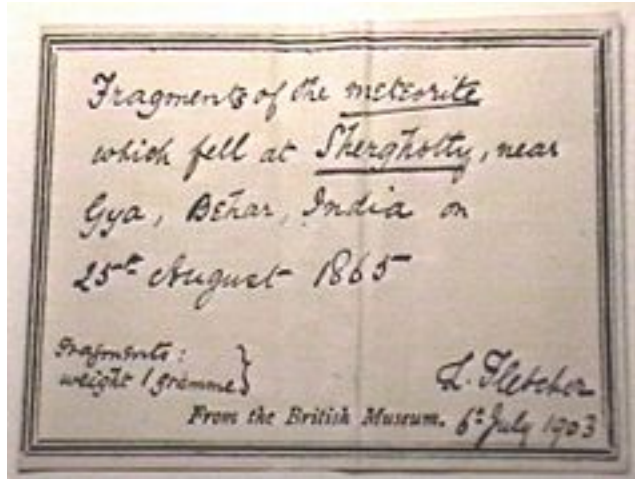 Fragments of the meteorite
which fell at Sherghotty, near
Gya, Behar, India on
25th August 1865
Fragments:
weight 1 gramme
L. Fletcher
From the British Museum. 6t July 1903